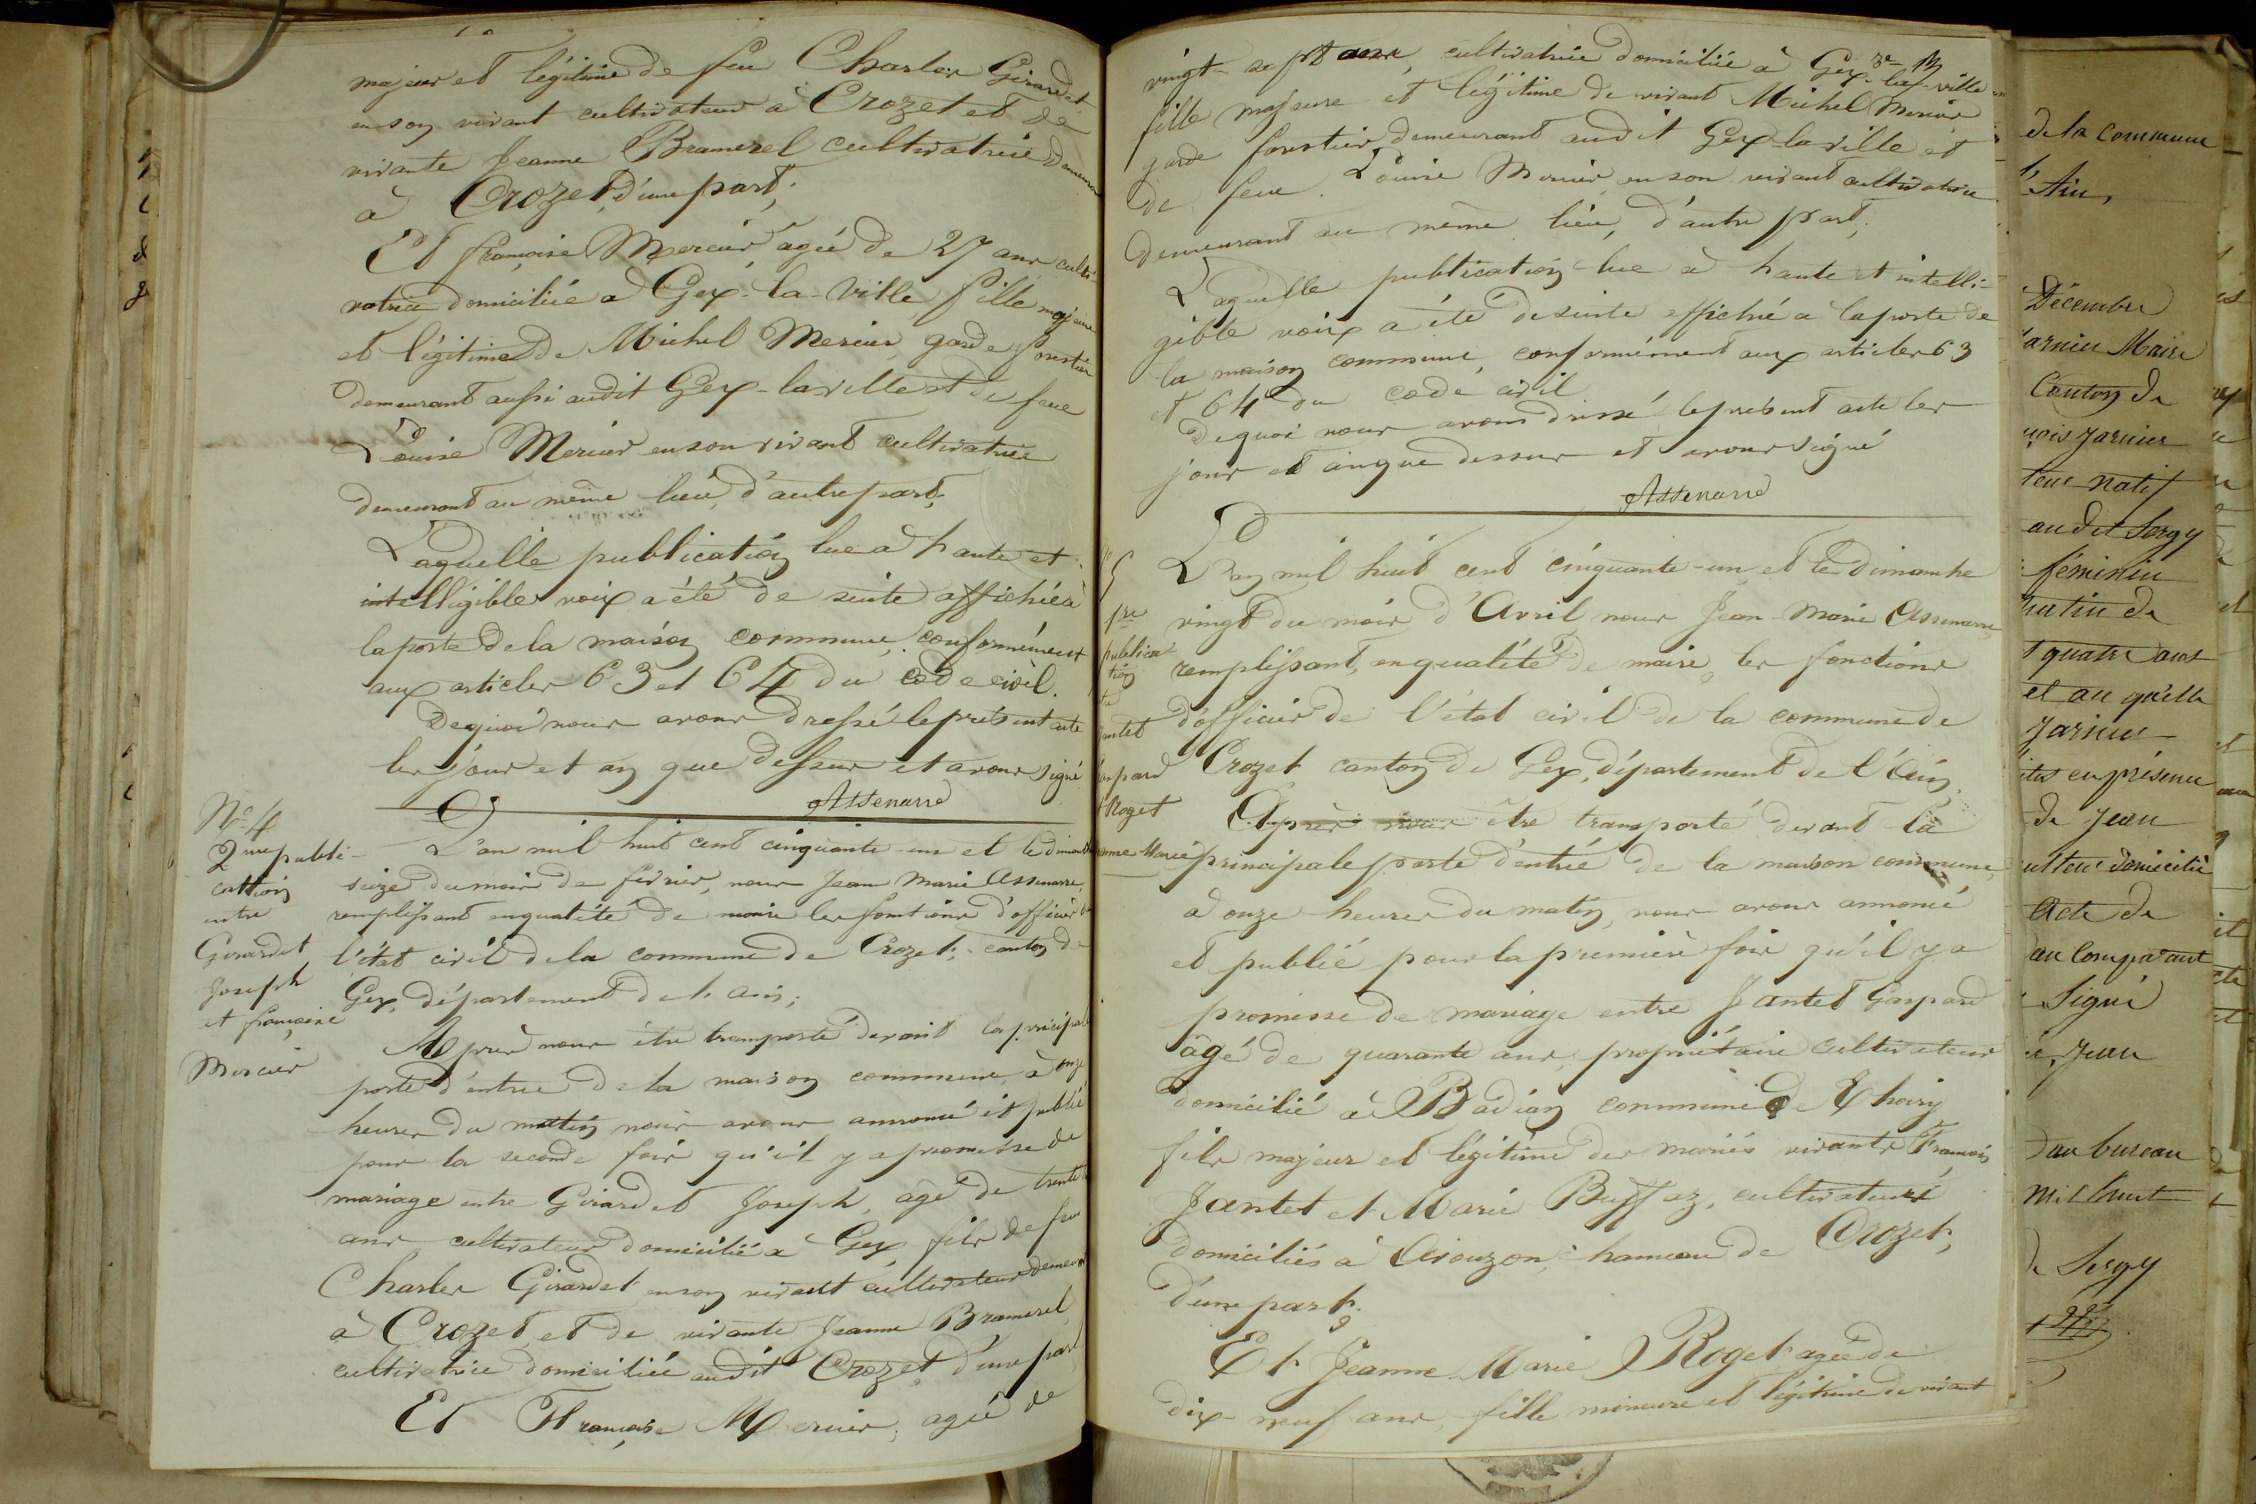 majeur et légitime de feu Charles Girardet
en son vivant cultivateur à Crozet et de
vivante Jeanne Bramerel cultivatrice
à Crozet, d'une part;
Et françoise Mercier, agée de 27 ans culti-
vatrice domiciliée à Gex-la-Ville, fille majeure
et légitime de Michel Mercier, garde forestier
demeurant aussi audit Gex-la ville et de feue
Louise Mercier en son vivant cultivatrice
demeurant au même lieu, d'autre part;
Laquelle publication lue à haute et
intelligible voix a été de suite affichée à
la porte de la maison commune, conformément
aux articles 63 et 64 du code civil.
De quoi nous avons dressé le présent acte
les jour et an que dessus et avons signé
Assenarre
N° 4
2me publi-
cation
entre
Girardet
Joseph
et françoise
Mercier
L'an mil huit cent cinquante-un et le dimanche
seize du mois de février, nous Jean Marie Assenarre,
remplissant en qualité de maire les fonctions d'officier de
l'état civil de la commune de Crozet, canton de
Gex, département de l'ain;
Après nous être transporté devant la principale
porte d'entrée de la maison commune, à onze
heures du matin nous avons annoncé et publié
pour la seconde fois qu'il y a promesse de
mariage entre Girardet Joseph, âgé de trente
ans cultivateur domicilié à Gex fils de feu
Charles Girardet en son vivant cultivateur
à Crozet, et de vivante Jeanne Bramerel,
cultivatrice domiciliée audit Crozet, d'une part
Et Françoise Mercier, agée de
vingt-sept ans, cultivatrice domiciliée à Gex-la-ville
fille majeure et légitime de vivant Michel Mercier
garde forestier, demeurant audit Gex-la ville et
de feue Louise Mercier, en son vivant cultivatrice
demeurant au même lieu, d'autre part;
Laquelle publication lue à haute et intelli-
gible voix a été de suite affichée à la porte de
la maison commune, conformément aux articles 63
et 64 du code civil
De quoi nous avons dressé le présent acte les
jour et an que dessus et avons signé
Assenarre
1re
publica
tion
Jantet
Gaspard
Roget
Jeanne Marie
L'an mil huit cent cinquante-un et le dimanche
vingt du mois d'Avril nous Jean-Marie Assenarre
remplissant, en qualité de maire, les fonctions
d'officier de l'état civil de la commune de
Crozet canton de Gex, département de l'Ain
Après nous être transporté devant la
principale porte d'entrée de la maison commune,
à onze heures du matin, nous avons annoncé
et publié pour la première fois qu'il y a
promesse de mariage entre Jantet Gaspard
âgé de quarante ans, propriétaire cultivateur
domicilié à Badian commune de Thoiry
fils majeur et légitime des mariés vivants François
Jantet et Marie Buffaz, cultivateurs
domiciliés à Avouzon, hameau de Crozet,
d'une part;
Et Jeanne Marie Roget agée de
dix-neuf ans, fille mineure et légitime de vivant
de la commune
l'Ain,
Décembre
Maire
Canton de
Jarnier
natif
audit Sergy
féminin
matin de
quatre ans
et au qu'elle
Jarnier
en présence
de Jean
domicilié
Acte de
au Comparant
Signé
Jean
au bureau
mil huit
de Sergy